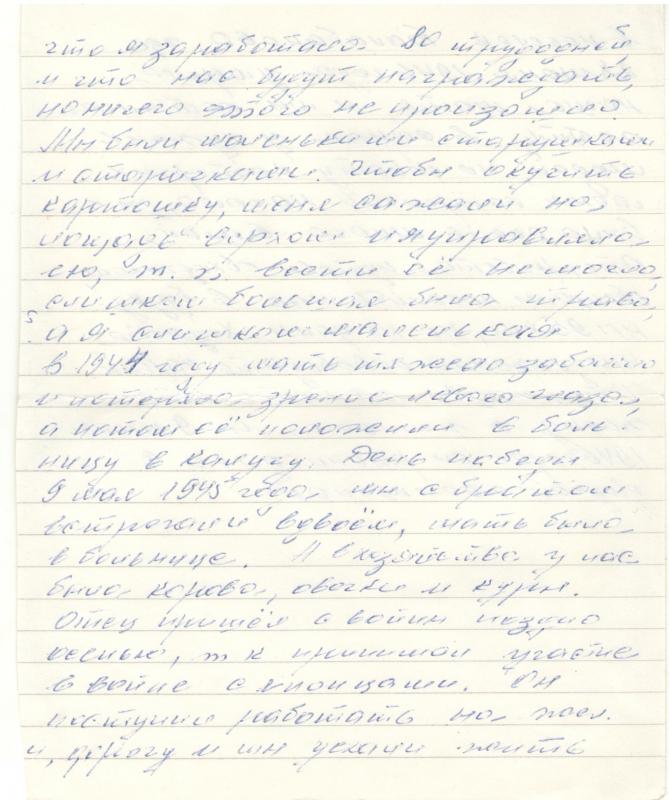 что я заработала 80 трудодней,
и что нас будут награждать,
но ничего этого не произошло.
Мы были маленькими старушками
и старичками. Чтобы окучить
картошку, меня сажали на
лошадь верхом и я управляла
ею, т. к. вести её не могла,
слишком большая была трава,
а я слишком маленькая
в 1944 году мать тяжело заболела
и потеряла зрение левого глаза,
а потом её положили в боль-
ницу в Калугу. День победы
9 мая 1945 года, мы с братом
встречали вдвоём, мать была
в больнице. А в хозяйстве у нас
была корова, овечки и куры.
Отец пришёл с войны поздно
осенью, т к принимал участие
в войне с японцами. Он
поступил работать на жел.
дорогу и мы уехали жить